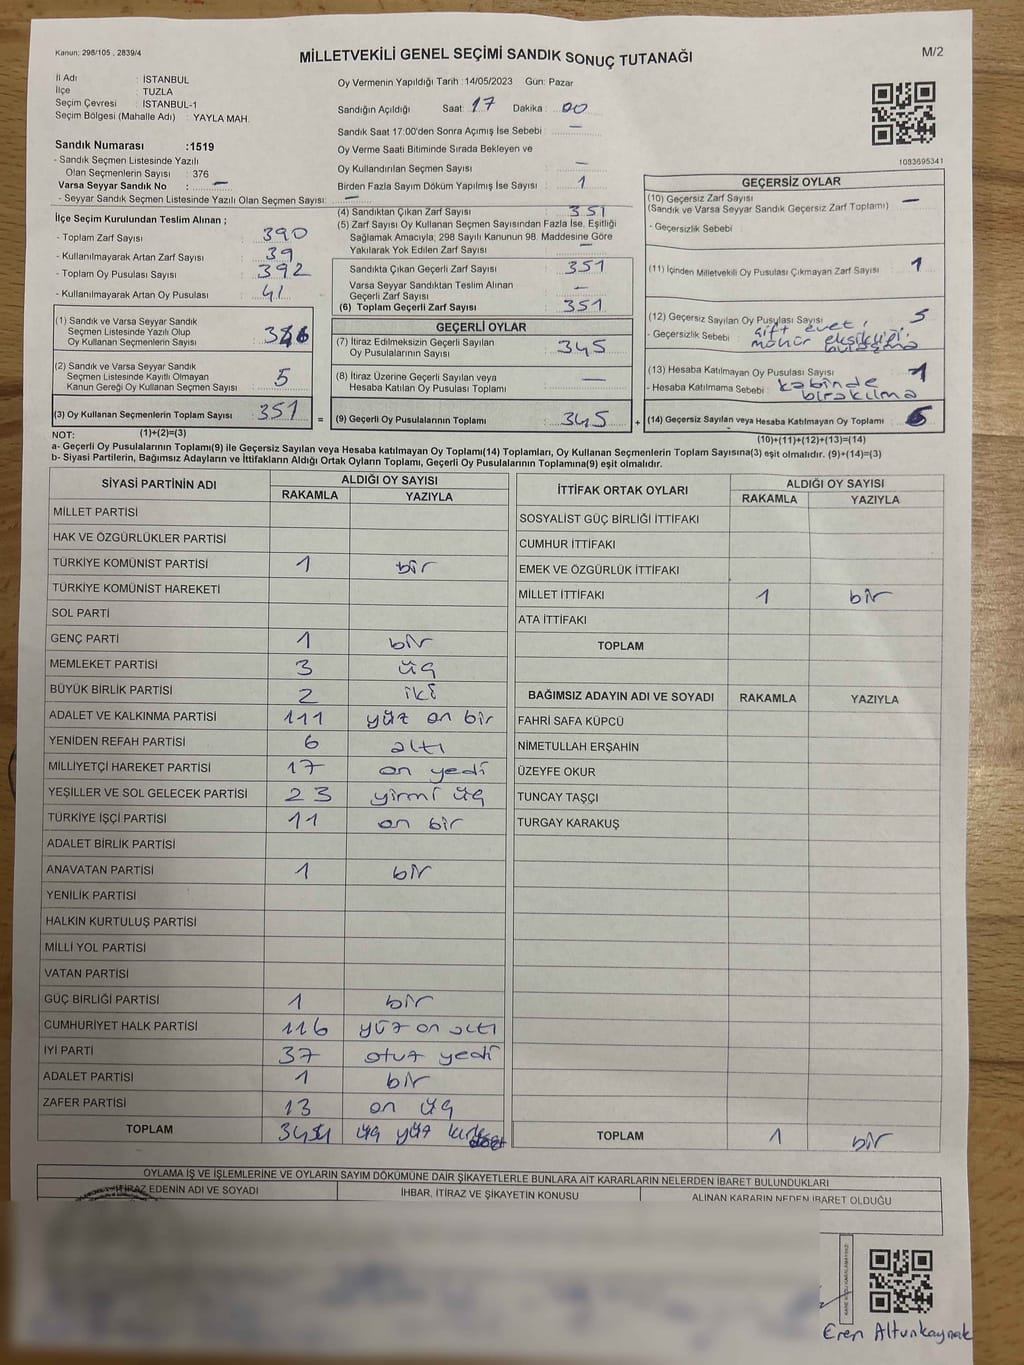 Kanun: 298/105 , 2839/4
MİLLETVEKİLİ GENEL SEÇİMİ SANDIK SONUÇ TUTANAĞI
M/2
İl Adı : İSTANBUL
İlçe : TUZLA
Seçim Çevresi : İSTANBUL-1
Seçim Bölgesi (Mahalle Adı) : YAYLA MAH.
Oy Vermenin Yapıldığı Tarih : 14/05/2023 Gün: Pazar
Sandığın Açıldığı Saat: 17 Dakika : 00
Sandık Saat 17:00'den Sonra Açımış İse Sebebi : —
Oy Verme Saati Bitiminde Sırada Bekleyen ve
Oy Kullandırılan Seçmen Sayısı : —
Birden Fazla Sayım Döküm Yapılmış İse Sayısı : 1
1083695341
Sandık Numarası :1519
- Sandık Seçmen Listesinde Yazılı
Olan Seçmenlerin Sayısı : 376
Varsa Seyyar Sandık No : —
- Seyyar Sandık Seçmen Listesinde Yazılı Olan Seçmen Sayısı: —
İlçe Seçim Kurulundan Teslim Alınan ;
- Toplam Zarf Sayısı : 390
- Kullanılmayarak Artan Zarf Sayısı : 39
- Toplam Oy Pusulası Sayısı : 392
- Kullanılmayarak Artan Oy Pusulası : 41
(1) Sandık ve Varsa Seyyar Sandık
Seçmen Listesinde Yazılı Olup
Oy Kullanan Seçmenlerin Sayısı :
(2) Sandık ve Varsa Seyyar Sandık
Seçmen Listesinde Kayıtlı Olmayan
Kanun Gereği Oy Kullanan Seçmen Sayısı : 5
(3) Oy Kullanan Seçmenlerin Toplam Sayısı : 351
(1)+(2)=(3)
(4) Sandıktan Çıkan Zarf Sayısı : 351
(5) Zarf Sayısı Oy Kullanan Seçmen Sayısından Fazla İse, Eşitliği
Sağlamak Amacıyla, 298 Sayılı Kanunun 98. Maddesine Göre
Yakılarak Yok Edilen Zarf Sayısı : —
Sandıkta Çıkan Geçerli Zarf Sayısı : 351
Varsa Seyyar Sandıktan Teslim Alınan
Geçerli Zarf Sayısı : —
(6) Toplam Geçerli Zarf Sayısı : 351
GEÇERLİ OYLAR
(7) İtiraz Edilmeksizin Geçerli Sayılan
Oy Pusulalarının Sayısı : 345
(8) İtiraz Üzerine Geçerli Sayılan veya
Hesaba Katılan Oy Pusulası Toplamı : —
= (9) Geçerli Oy Pusulalarının Toplamı : 345
GEÇERSİZ OYLAR
(10) Geçersiz Zarf Sayısı : —
(Sandık ve Varsa Seyyar Sandık Geçersiz Zarf Toplamı)
- Geçersizlik Sebebi :
(11) İçinden Milletvekili Oy Pusulası Çıkmayan Zarf Sayısı : 1
(12) Geçersiz Sayılan Oy Pusulası Sayısı :
- Geçersizlik Sebebi : çift evet,
mühür eksikliği,
bulaşma
(13) Hesaba Katılmayan Oy Pusulası Sayısı : 1
- Hesaba Katılmama Sebebi : kabinde
bırakılma
+ (14) Geçersiz Sayılan veya Hesaba Katılmayan Oy Toplamı : 6
(10)+(11)+(12)+(13)=(14)
NOT:
a- Geçerli Oy Pusulalarının Toplamı(9) ile Geçersiz Sayılan veya Hesaba katılmayan Oy Toplamı(14) Toplamları, Oy Kullanan Seçmenlerin Toplam Sayısına(3) eşit olmalıdır. (9)+(14)=(3)
b- Siyasi Partilerin, Bağımsız Adayların ve İttifakların Aldığı Ortak Oyların Toplamı, Geçerli Oy Pusulalarının Toplamına(9) eşit olmalıdır.
SİYASİ PARTİNİN ADI ALDIĞI OY SAYISI
RAKAMLA YAZIYLA
MİLLET PARTİSİ
HAK VE ÖZGÜRLÜKLER PARTİSİ
TÜRKİYE KOMÜNİST PARTİSİ 1 bir
TÜRKİYE KOMÜNİST HAREKETİ
SOL PARTİ
GENÇ PARTİ 1 bir
MEMLEKET PARTİSİ 3 üç
BÜYÜK BİRLİK PARTİSİ 2 iki
ADALET VE KALKINMA PARTİSİ 111 yüz on bir
YENİDEN REFAH PARTİSİ 6 altı
MİLLİYETÇİ HAREKET PARTİSİ 17 on yedi
YEŞİLLER VE SOL GELECEK PARTİSİ 23 yirmi üç
TÜRKİYE İŞÇİ PARTİSİ 11 on bir
ADALET BİRLİK PARTİSİ
ANAVATAN PARTİSİ 1 bir
YENİLİK PARTİSİ
HALKIN KURTULUŞ PARTİSİ
MİLLİ YOL PARTİSİ
VATAN PARTİSİ
GÜÇ BİRLİĞİ PARTİSİ 1 bir
CUMHURİYET HALK PARTİSİ 116 yüz on altı
İYİ PARTİ 37 otuz yedi
ADALET PARTİSİ 1 bir
ZAFER PARTİSİ 13 on üç
TOPLAM üç yüz kırk
İTTİFAK ORTAK OYLARI ALDIĞI OY SAYISI
RAKAMLA YAZIYLA
SOSYALİST GÜÇ BİRLİĞİ İTTİFAKI
CUMHUR İTTİFAKI
EMEK VE ÖZGÜRLÜK İTTİFAKI
MİLLET İTTİFAKI 1 bir
ATA İTTİFAKI
TOPLAM
BAĞIMSIZ ADAYIN ADI VE SOYADI RAKAMLA YAZIYLA
FAHRİ SAFA KÜPCÜ
NİMETULLAH ERŞAHİN
ÜZEYFE OKUR
TUNCAY TAŞÇI
TURGAY KARAKUŞ
TOPLAM 1 bir
OYLAMA İŞ VE İŞLEMLERİNE VE OYLARIN SAYIM DÖKÜMÜNE DAİR ŞİKAYETLERLE BUNLARA AİT KARARLARIN NELERDEN İBARET BULUNDUKLARI
İTİRAZ EDENİN ADI VE SOYADI İHBAR, İTİRAZ VE ŞİKAYETİN KONUSU ALINAN KARARIN NEDEN İBARET OLDUĞU
Eren Altunkaynak